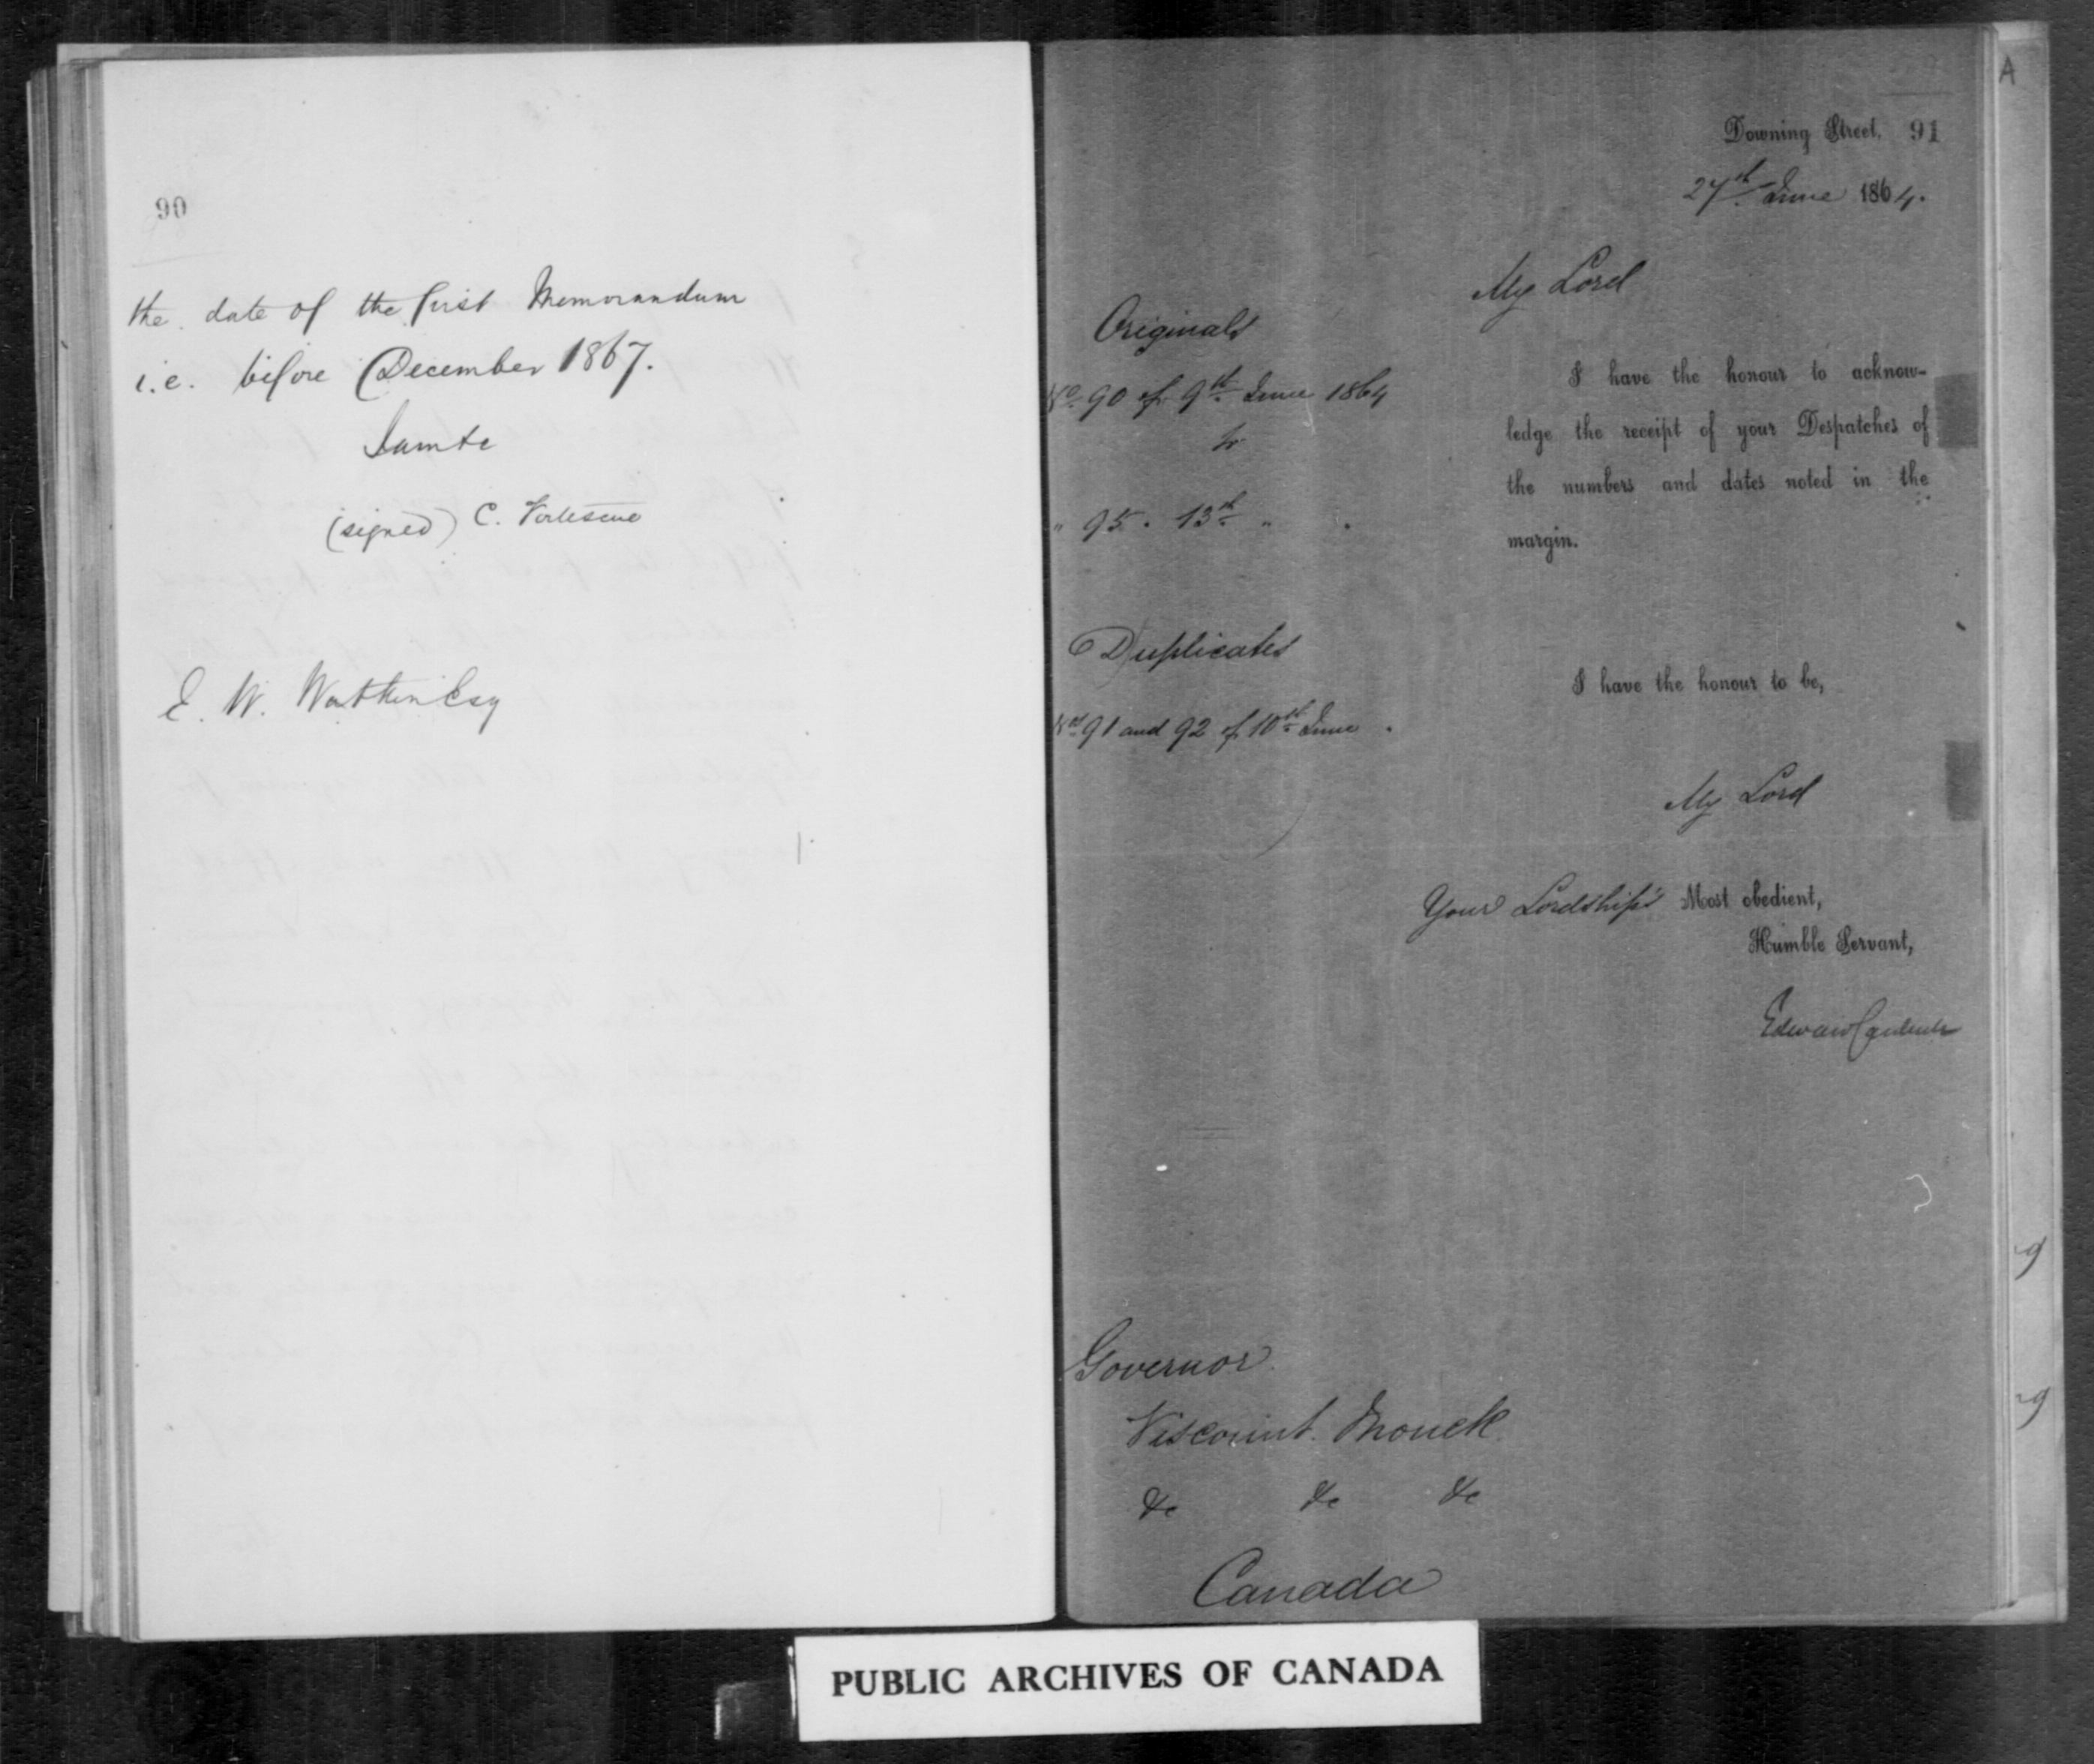 90
the date of the first Memorandum
i.e. before December 1867.
I am &c
(signed) C. Fortescue
E. W. Watkin Esq
A
Downing Street, 91
27th June 1864.
My Lord
Originals
No. 90 of 9th June 1864
to
" 95 . 13th "
Duplicates
Nos 91 and 92 of 10th June
I have the honour to acknow-
ledge the receipt of your Despatches of
the numbers and dates noted in the
margin.
I have the honour to be,
My Lord
Your Lordship's Most obedient,
Humble Servant,
Edward Cardwell
Governor
Viscount Monck
&c &c &c
Canada
PUBLIC ARCHIVES OF CANADA